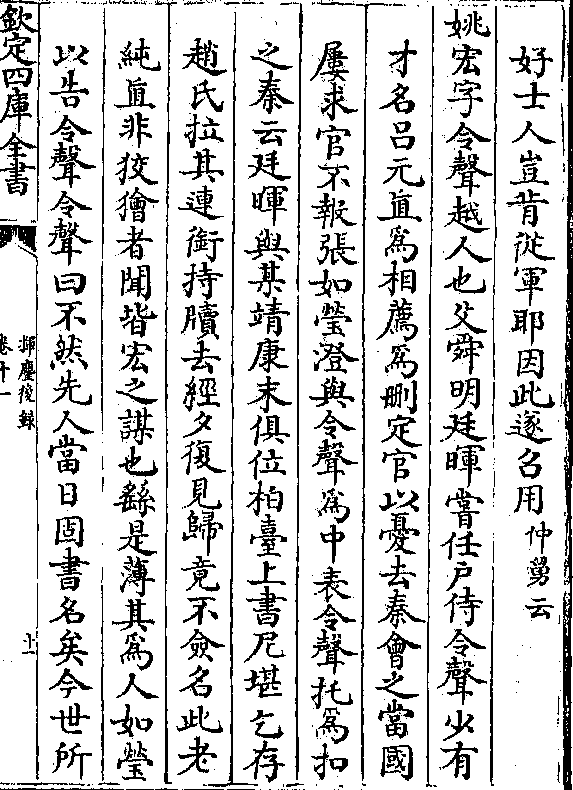 好士人豈肯從軍耶因此遂召用仲舅云
姚宏字令聲越人也父舜明廷暉嘗任户侍令聲少有
才名吕元直為相薦為刪定官以憂去秦會之當國
屢求官不報張如瑩澄與令聲為中表令聲托為扣
之秦云廷暉與某靖康末俱位柏臺上書尼堪乞存
趙氏拉其連銜持牘去經夕復見歸竟不僉名此老
純直非狡獪者聞皆宏之謀也繇是薄其為人如瑩
以告令聲令聲曰不然先人當日固書名矣今世所
欽定四庫全書
揮麈後録
卷十一